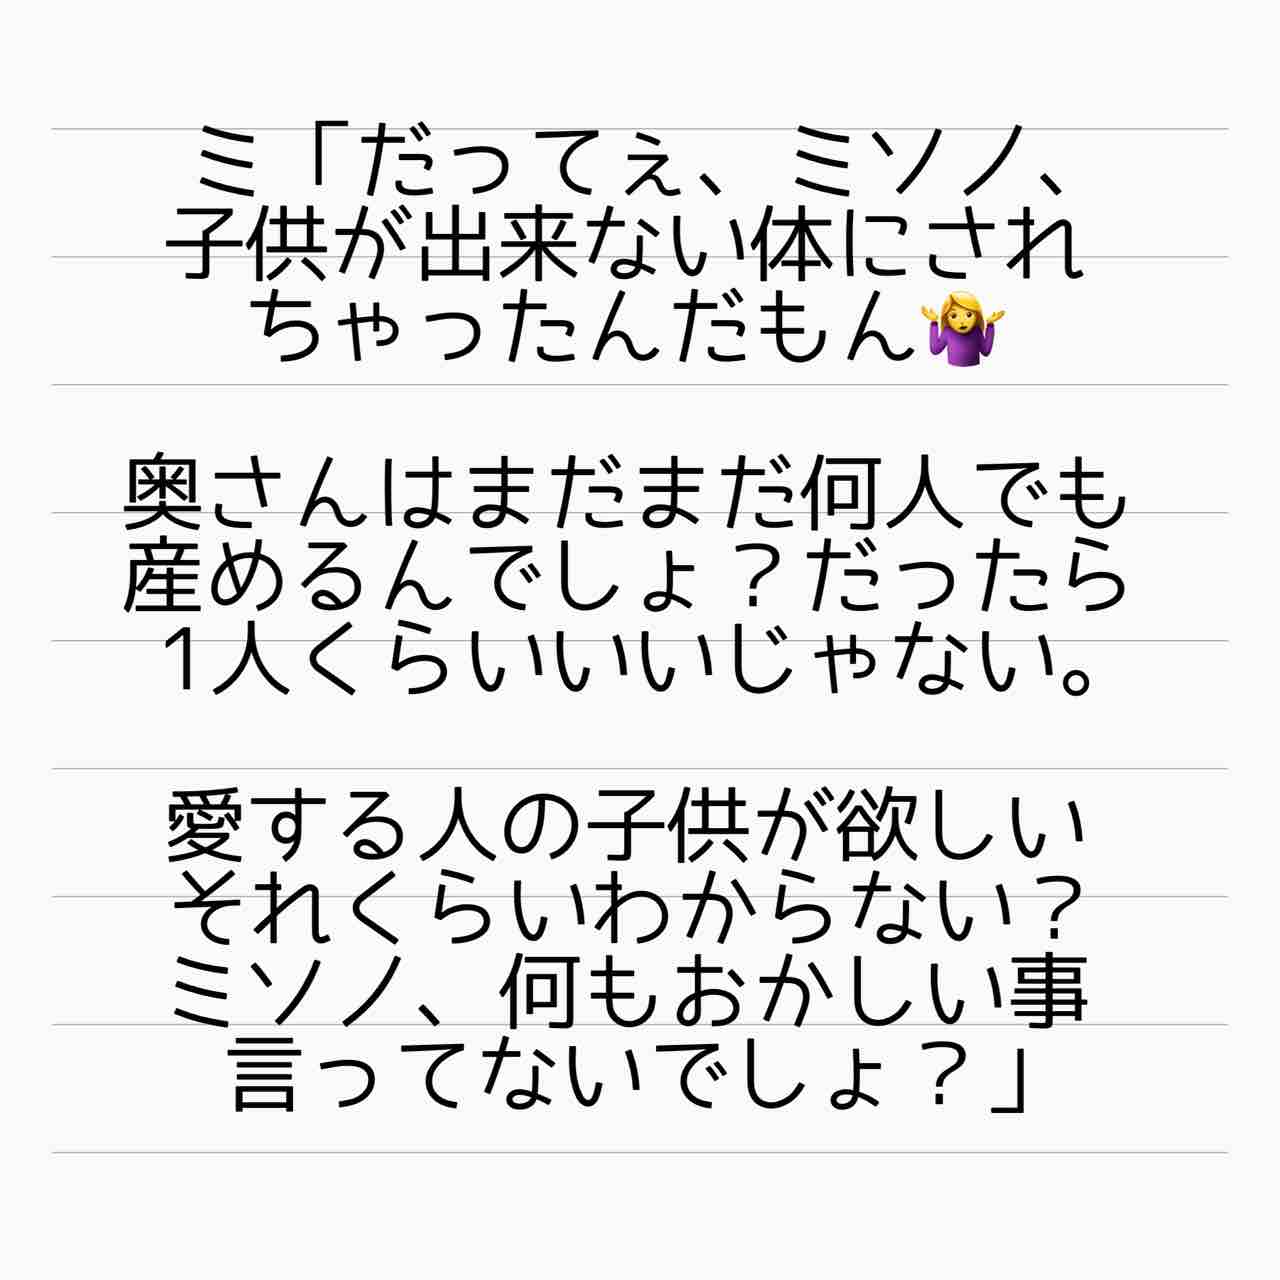 ミ「だってぇ、ミソノ、
子供が出来ない体にされ
ちゃったんだもん🤷‍♀️
奥さんはまだまだ何人でも
産めるんでしょ？だったら
1人くらいいいじゃない。
愛する人の子供が欲しい
それくらいわからない？
ミソノ、何もおかしい事
言ってないでしょ？」